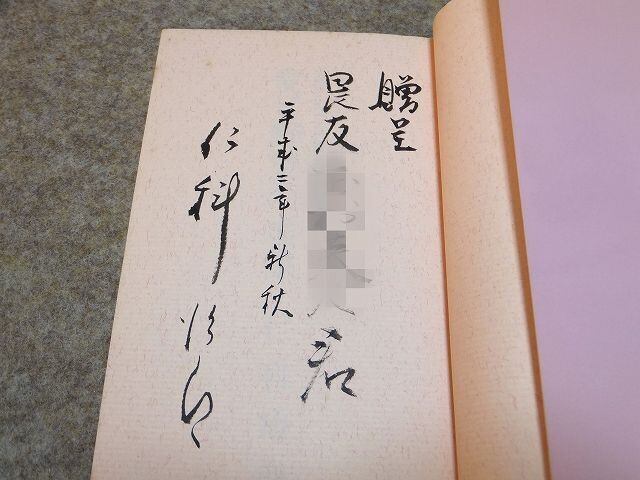 贈呈
畏友 君
平成二年新秋
仁科